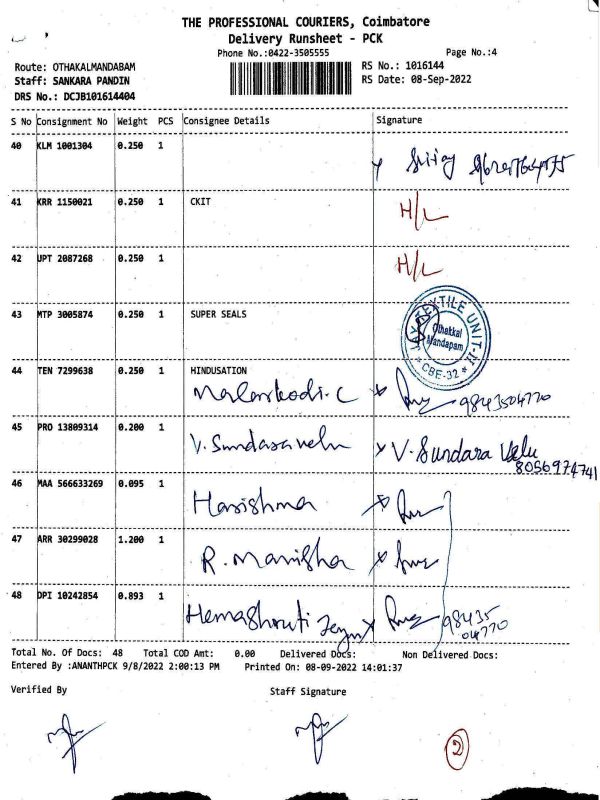 THE PROFESSIONAL COURIERS, Coimbatore
Delivery Runsheet - PCK
Phone No.:0422-3505555
Page No.:4
Route: OTHAKALMANDABAM
RS No.: 1016144
Staff: SANKARA PANDIN
RS Date: 08-Sep-2022
DRS No.: DCJB101614404
S No Consignment No Weight PCS Consignee Details Signature
40 KLM 1001304 0.250 1
41 KRR 1150021 0.250 1 CKIT H/L
42 UPT 2087268 0.250 1 H/L
43 MTP 3005874 0.250 1 SUPER SEALS
JAY TEXTILE UNIT-II
Othakkal
Mandapam
* CBE-32 *
44 TEN 7299638 0.250 1 HINDUSATION
Malarkodi.C 9843504770
45 PRO 13809314 0.200 1
V. Sundaravelu x V. Sundara Velu
8056974741
46 MAA 566633269 0.095 1
Harishma
47 ARR 30299028 1.200 1
R. Manisha
48 DPI 10242854 0.893 1
Hemashruti 98435
04770
Total No. Of Docs: 48 Total COD Amt: 0.00 Delivered Docs: Non Delivered Docs:
Entered By :ANANTHPCK 9/8/2022 2:00:13 PM Printed On: 08-09-2022 14:01:37
Verified By Staff Signature
2